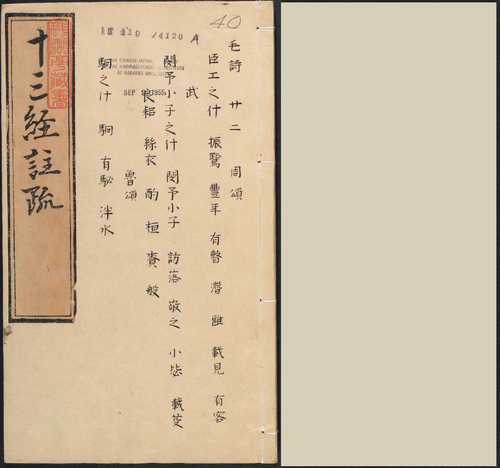 十三經註疏
40
110 14120 A
THE CHINESE-JAPANESE
THE HARVARD-YENCHING INSTITUTE
AT HARVARD
SEP 1955
毛詩 廿二 周頌
臣工之什 振鷺 豐年 有瞽 潛 雝 載見 有客
武
閔予小子之什 閔予小子 訪落 敬之 小毖 載芟
良耜 絲衣 酌 桓 賚 般
魯頌
駉之什 駉 有駜 泮水